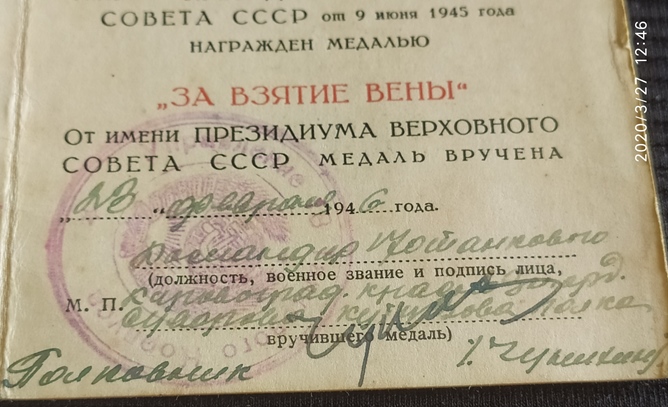 СОВЕТА СССР от 9 июня 1945 года
НАГРАЖДЕН МЕДАЛЬЮ
„ЗА ВЗЯТИЕ ВЕНЫ“
От имени ПРЕЗИДИУМА ВЕРХОВНОГО
СОВЕТА СССР МЕДАЛЬ ВРУЧЕНА
„28“ февраля 1946 года.
Командир
(должность, военное звание и подпись лица,
М. П. Кировоград. красн.
Кутузова полка
вручившего медаль)
Полковник
2020/3/27 12:46